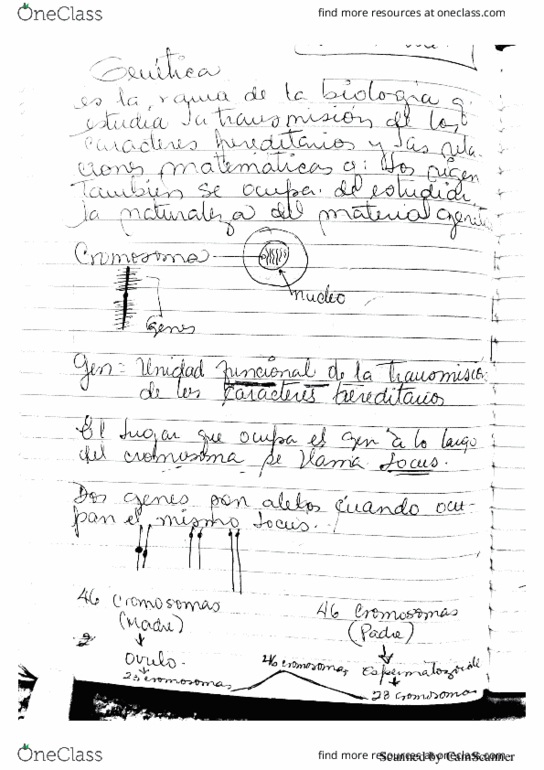 OneClass
find more resources at oneclass.com
Genética
es la rama de la biología q.
estudia la transmisión de los
caracteres hereditarios y las rela
ciones matemáticas q: los rigen
También se ocupa de estudiar
la naturaleza del material genéti
Cromosoma
nucleo
Genes
Gen = Unidad funcional de la transmisió
de los caracteres hereditarios
El lugar que ocupa el gen a lo largo
del cromosoma se llama locus.
Dos genes son alelos cuando ocu-
pan el mismo locus.
46 Cromosomas
(Madre)
46 Cromosomas
(Padre)
Ovulo
46 cromosomas
Espermatozoide
23 cromosomas
23 cromosomas
OneClass
find more resources at oneclass.com
Scanned by CamScanner